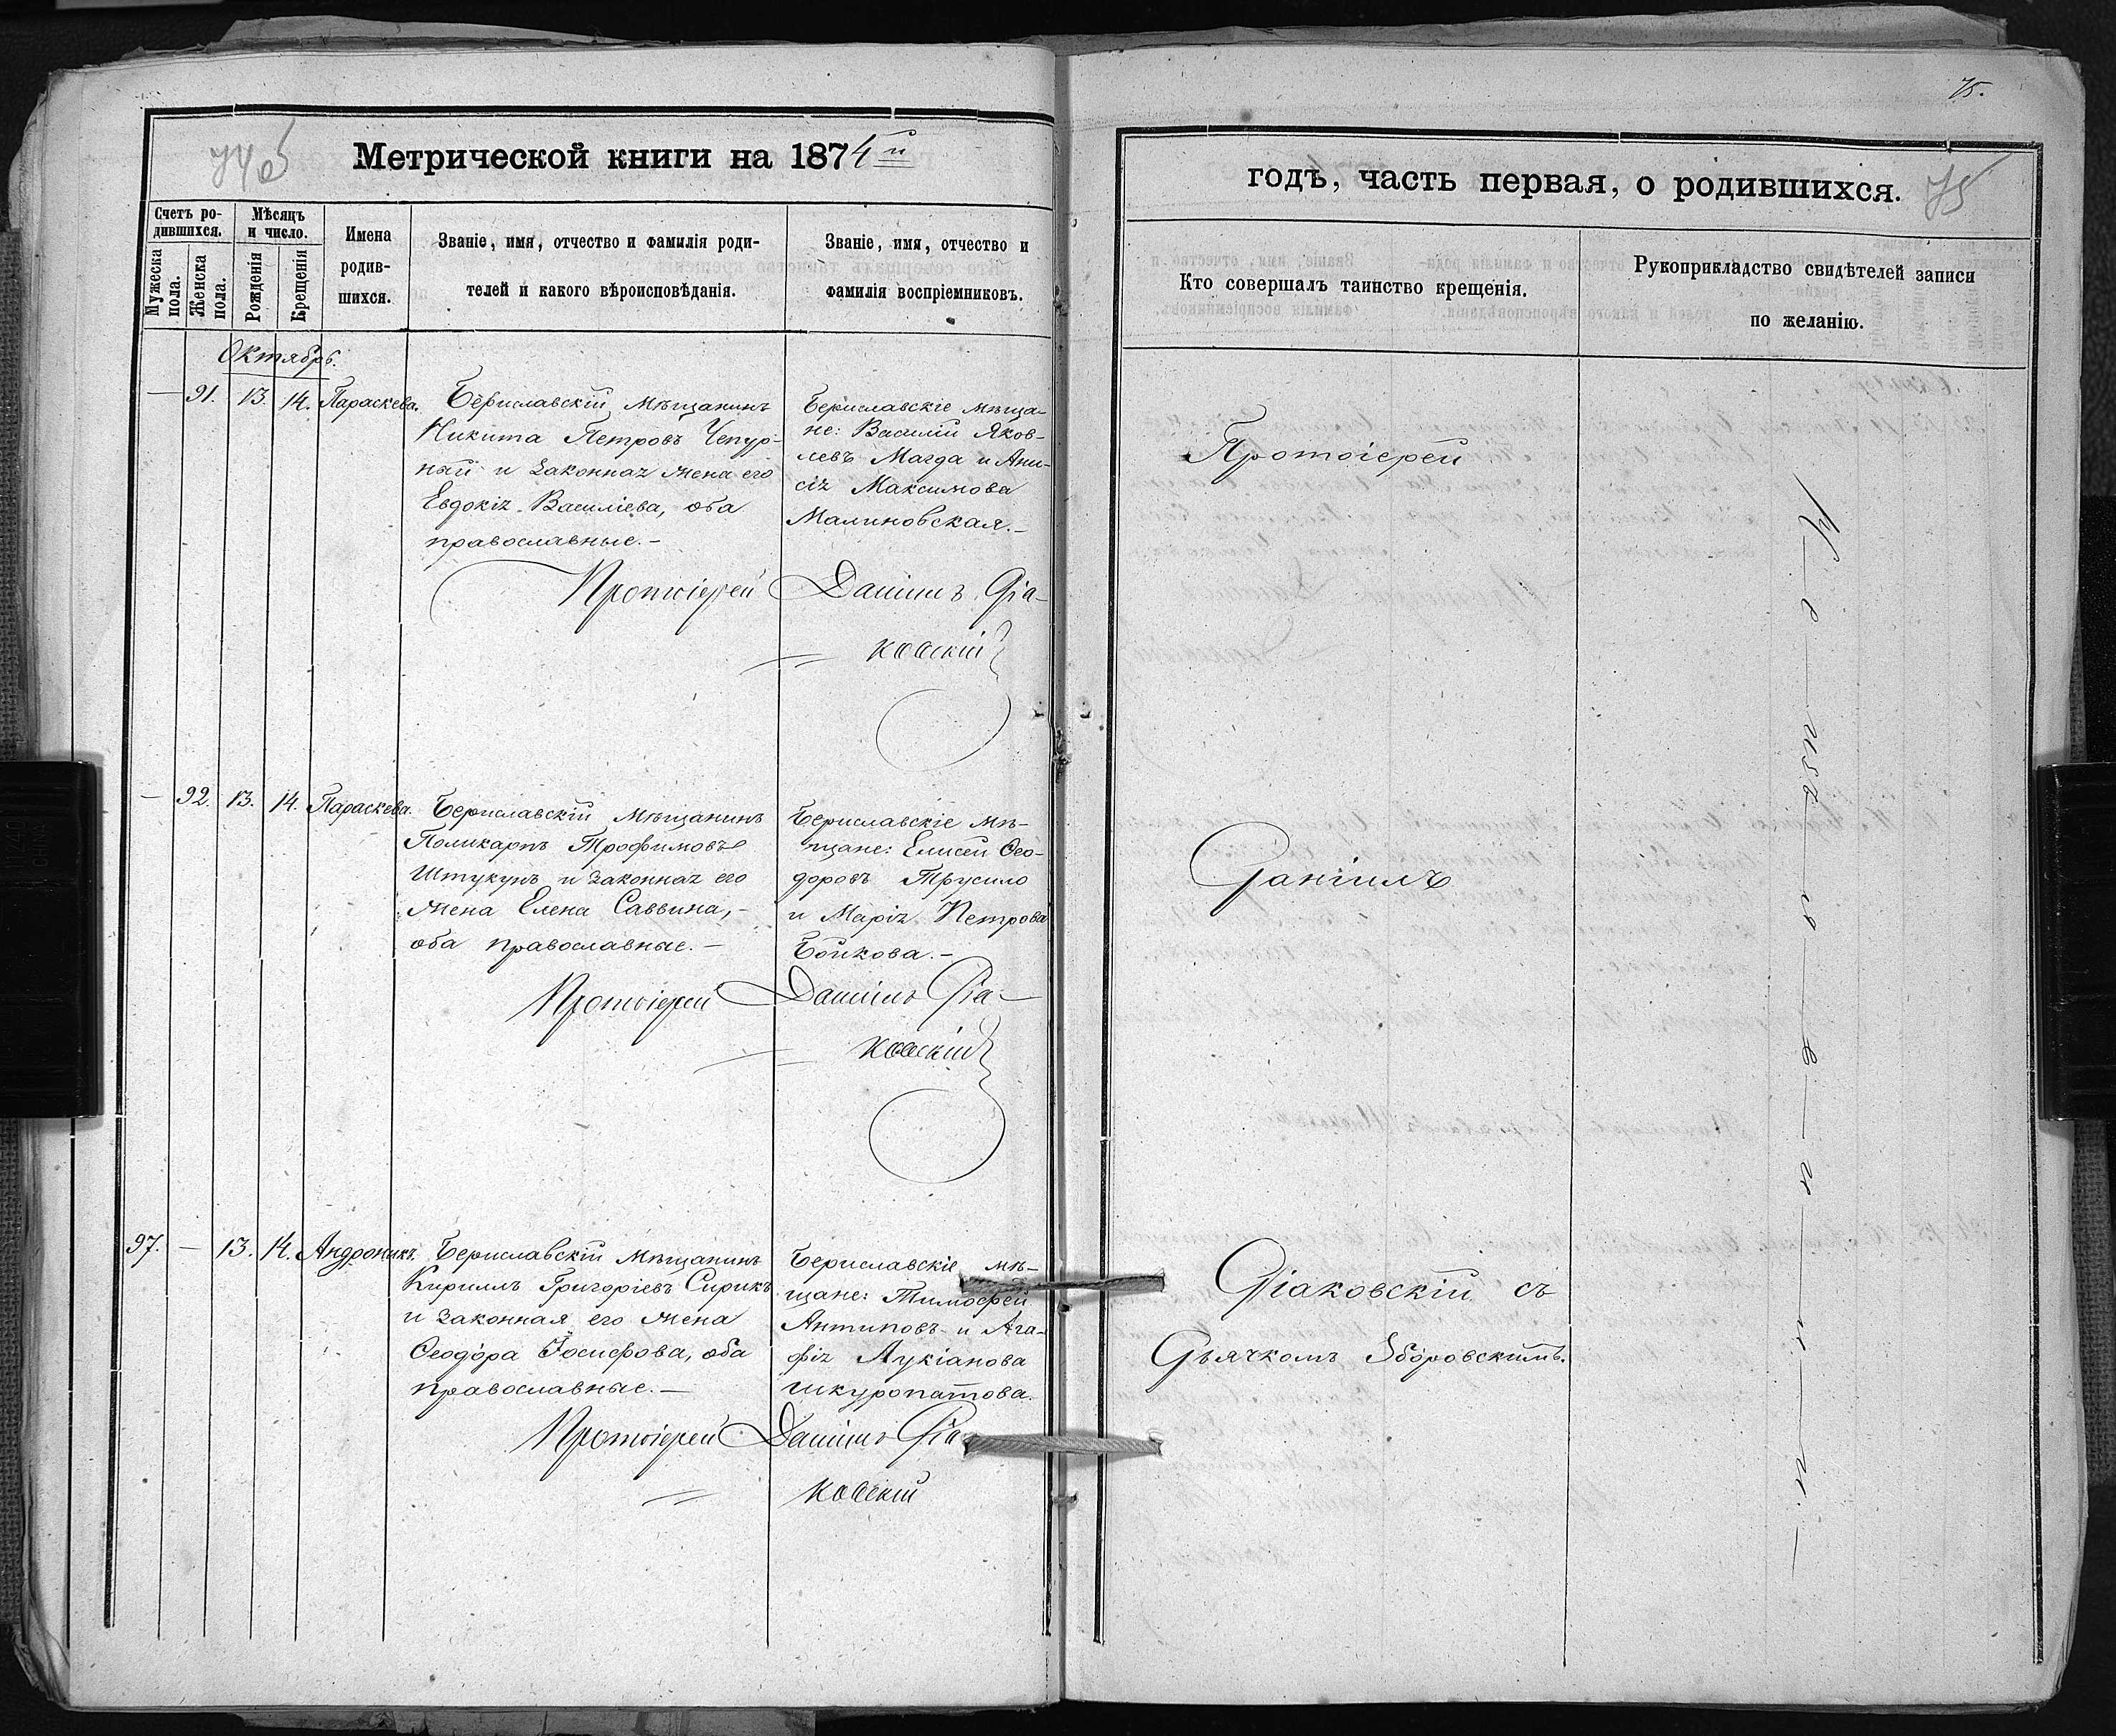 74об
Метрической книги на 1874й
Счетъ ро-
дившихся.
Мѣсяцъ
и число.
Мужеска
пола.
Женска
пола.
Рожденія
Крещенія
Имена
родив-
шихся.
Званіе, имя, отчество и фамилія роди-
телей и какого вѣроисповѣданія.
Званіе, имя, отчество и
фамилія воспріемниковъ.
Октябрь.
— 91. 13. 14. Параскева.
Бериславскій Мѣщанинъ
Никита Петровъ Чепур-
ный и законная жена его
Евдокія Василіева, оба
православные.-
Бериславскіе мѣща-
не: Василій Яков-
левъ Магда и Ани-
сія Максимова
Малиновская.-
Протоіерей Даніилъ Діа-
ковскій
— 92. 13. 14. Параскева.
Бериславскій Мѣщанинъ
Поликарпъ Трофимовъ
Штукунъ и законная его
жена Елена Саввина,-
оба православные.-
Бериславскіе мѣ-
щане: Елисей Ѳео-
доровъ Трусило
и Марія Петрова
Бойкова.-
Протоіерей Даніилъ Діа-
ковскій
97. — 13. 14. Андроникъ.
Бериславскій Мѣщанинъ
Кириллъ Григоріевъ Сирикъ
и законная его жена
Ѳеодора Іосифова, оба
православные.—
Бериславскіе мѣ-
щане: Тимофей
Антиповъ и Ага-
фія Лукіанова
Шкуропатова.
Протоіерей Даніилъ Діа-
ковскій
75.
годѣ, часть первая, о родившихся.
75
Кто совершалъ таинство крещенія.
Рукоприкладство свидѣтелей записи
по желанію.
Протоіерей
Даніилъ
Діаковскій съ
Дьячкомъ Зборовскимъ.